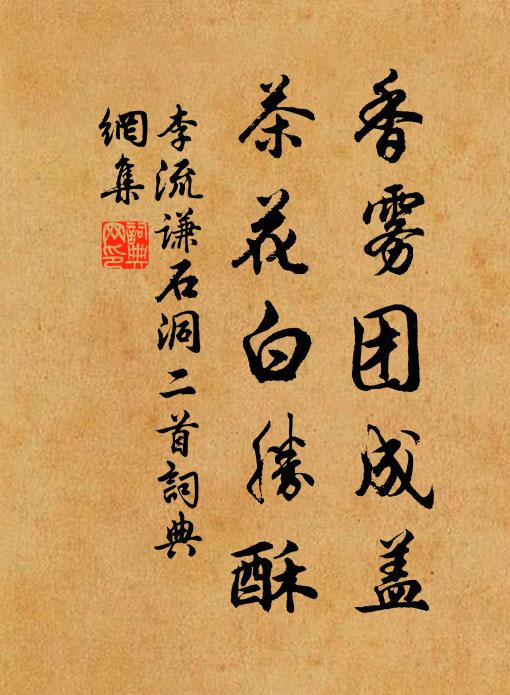 香雾团成盖
茶花白勝酥
李流谦石洞二首詞典
網集
詞典
网印